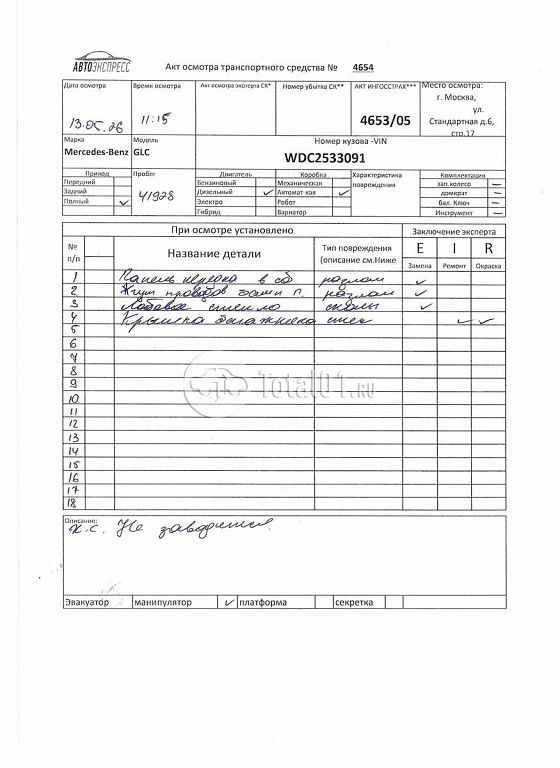 АВТОЭКСПРЕСС
Акт осмотра транспортного средства № 4654
Дата осмотра Время осмотра Акт осмотра эксперта СК* Номер убытка СК** АКТ ИНГОССТРАХ*** Место осмотра:
г. Москва,
ул.
13.05.26 11:15 4653/05 Стандартная д.6,
стр.17
Марка Модель Номер кузова -VIN
Mercedes-Benz GLC WDC2533091
Привод Пробег Двигатель Коробка Характеристика Комплектация
Передний Бензиновый Механическая повреждения зап.колесо —
Задний 41928 Дизельный ✓ Автомат-кая ✓ домкрат —
Полный ✓ Электро Робот бал. Ключ —
Гибрид Вариатор Инструмент —
При осмотре установлено Заключение эксперта
№ п/п Название детали Тип повреждения (описание см.Ниже E I R
Замена Ремонт Окраска
1 Панель передка в сб разлом ✓
2 Жгут проводов разлом ✓
3 Лобовое стекло сколы ✓
4 Крышка багажника ✓ ✓
5
6
7
8
9
10
11
12
13
14
15
16
17
18
Total01.RU
Описание:
Не заводится.
Эвакуатор манипулятор ✓ платформа секретка